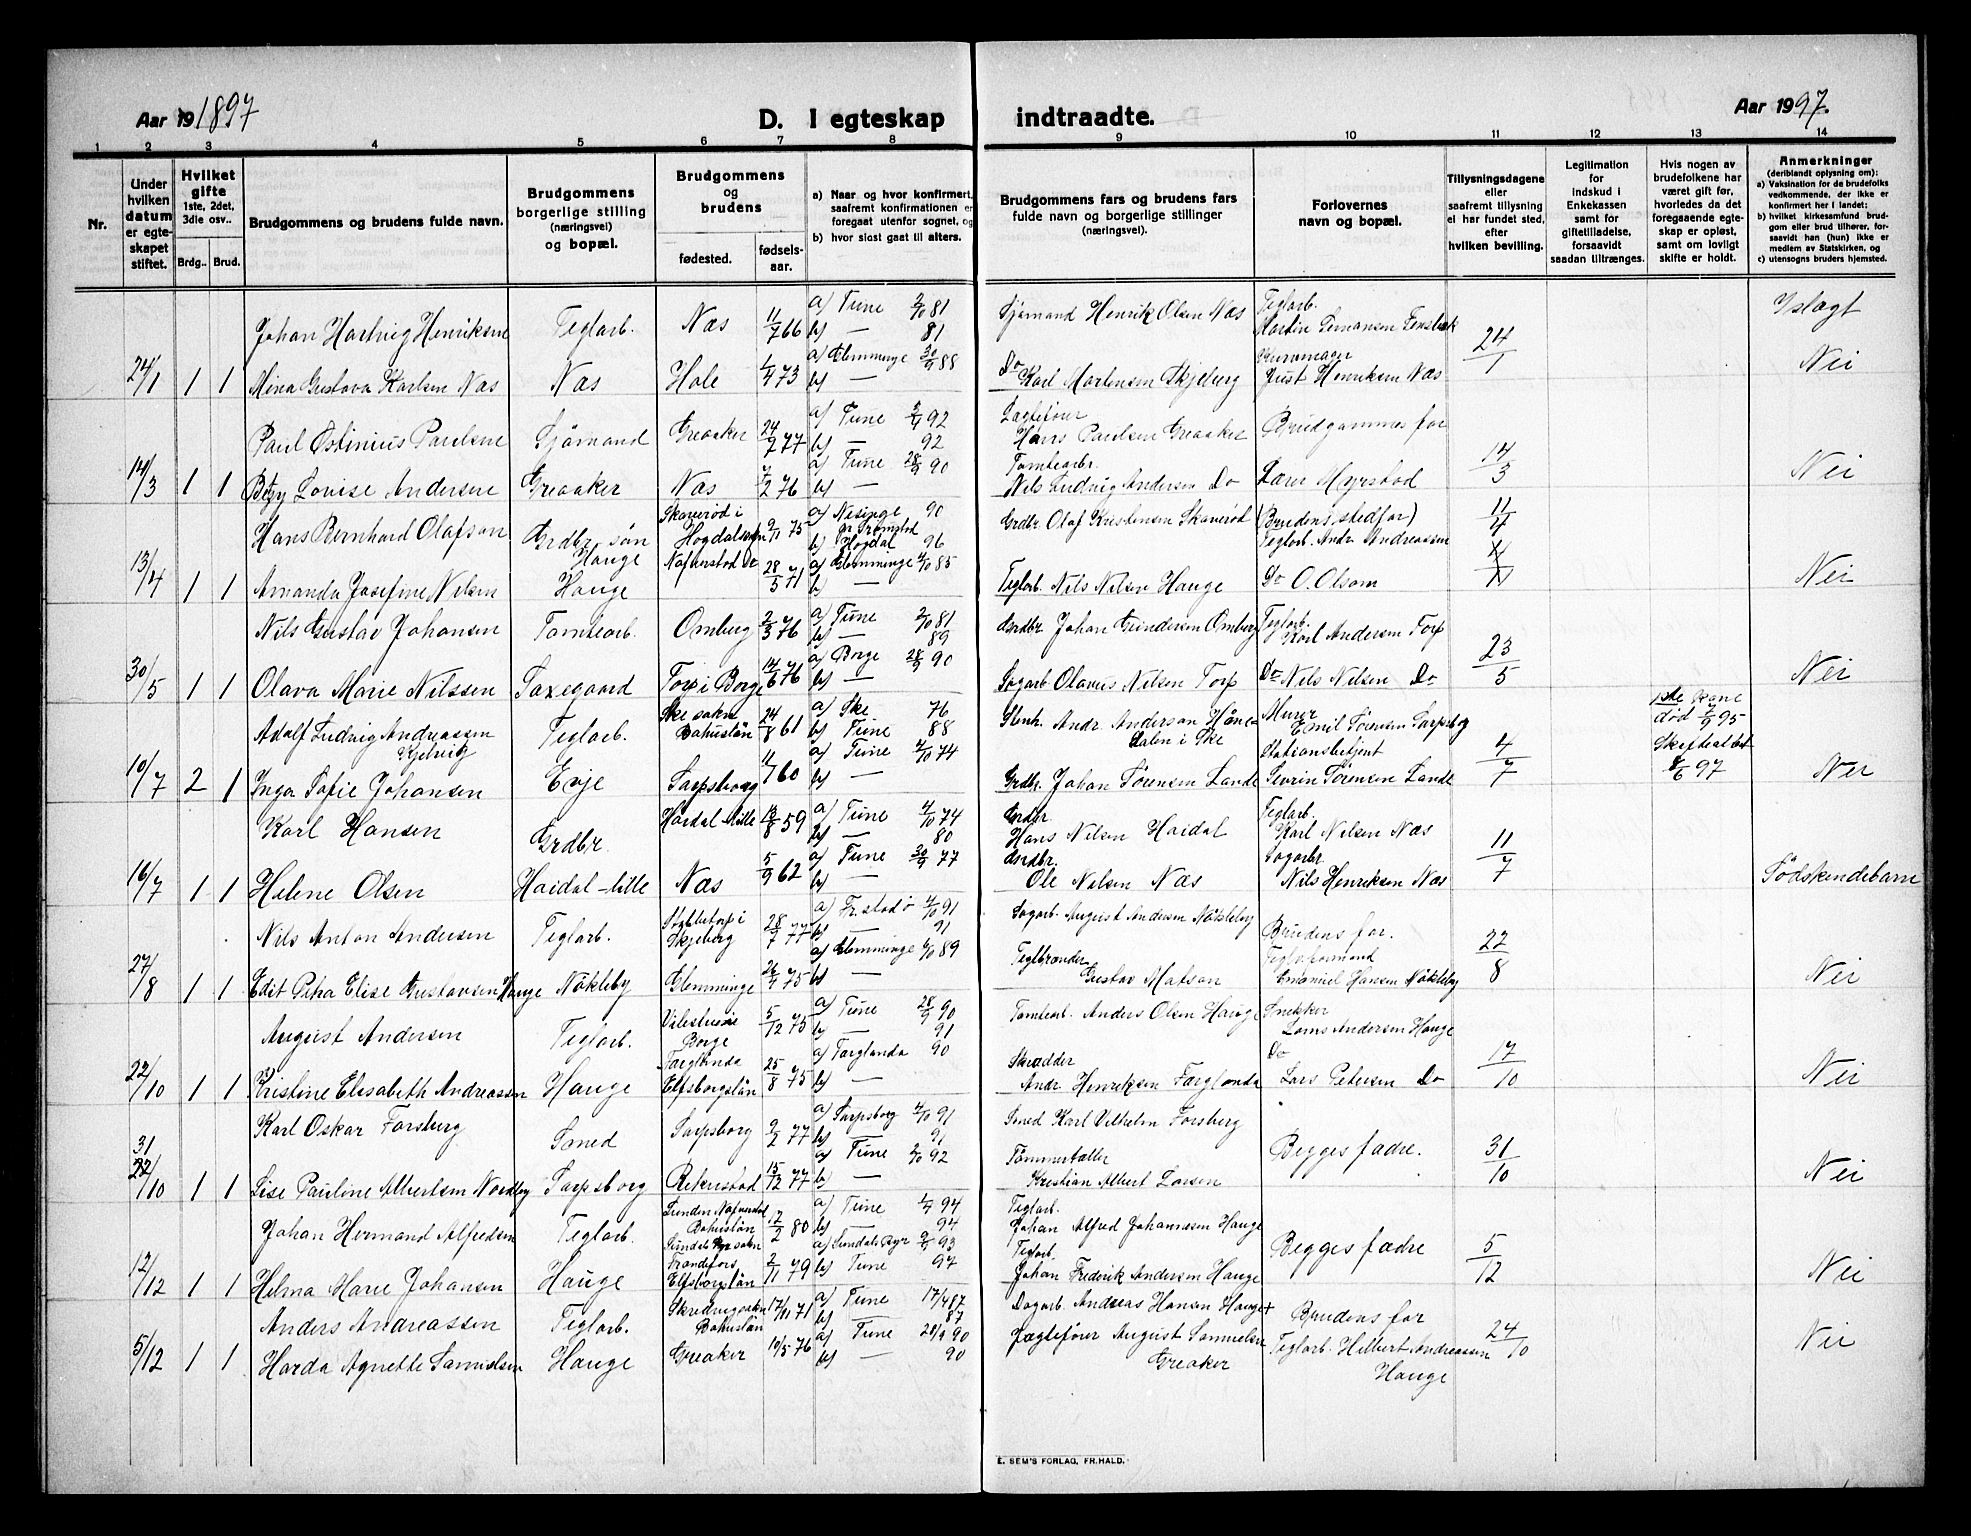 Aar 19 1897
D. I egteskap indtraadte.
Aar 1997.
1 2 3 4 5 6 7 8 9 10 11 12 13 14
Nr.
Under hvilken datum er egteskapet stiftet.
Hvilket gifte 1ste, 2det, 3die osv..
Brdg.. Brud.
Brudgommens og brudens fulde navn.
Brudgommens borgerlige stilling (næringsvei) og bopæl.
Brudgommens og brudens
fødested. fødsels-aar.
a) Naar og hvor konfirmert, saafremt konfirmationen er foregaat utenfor sognet, og
b) hvor sidst gaat til alters.
Brudgommens fars og brudens fars fulde navn og borgerlige stillinger (næringsvei).
Forlovernes navn og bopæl.
Tillysningsdagene eller saafremt tillysning ei har fundet sted, efter hvilken bevilling.
Legitimation for indskud i Enkekassen samt for giftetilladelse, forsaavidt saadan tiltrænges.
Hvis nogen av brudefolkene har været gift før, hvorledes da det foregaaende egteskap er opløst, samt om lovligt skifte er holdt.
Anmerkninger (deriblandt oplysning om):
a) Vaksination for de brudefolks vedkommende, der ikke er konfirmert her i landet;
b) hvilket kirkesamfund brudgom eller brud tilhører, forsaavidt han (hun) ikke er medlem av Statskirken, og
c) utensogns bruders hjemsted.
Johan Hartvig Henriksen Teglarb. Næs 11/7 66 a) Tune 2/10 81 b) — 81 Sjømand Henrik Olsen Næs Teglarb. Martin Yslagt
24/1 1 1 Mina Gustava Karlsen Næs Næs Hole 1/4 73 a) Glemminge 30/9 88 b) — Do Karl Mortensen Skjeberg Just Henriksen Næs 24/1 Nei
Paul Ostinius Paulsen Sjømand Greaaker 24/2 77 a) Tune 92 b) — 92 Hans Paulsen Greaaker Brudgommes far
14/3 1 1 Betzy Lovise Andersen Greaaker Næs 7/2 76 a) Tune 28/9 90 b) — Tomtearbr. Nils Ludvig Andersen Do Lars Myrstad 14/3 Nei
Hans Bernhard Olafson Grdbr. søn Hauge Skanerød i Hogdalssokn 2/11 75 a) Nesinge 90 b) Hogdal 96 Grdbr. Olaf Kristensen Skanerød (Brudens stedfar) Teglarb. Andr Andreassen 11/4
13/4 1 1 Amanda Josefine Nilsen Hauge Nafverstad Do 28/5 71 a) Glemminge 4/10 85 b) — Teglarb. Nils Nilsen Hauge Do O. Olsson Nei
Nils Gustav Johansen Tomtearb. Omberg 2/3 76 a) Tune 2/10 81 b) — 89 Grdbr. Johan Gundersen Omberg Teglarb. Karl Andersen Torp
30/5 1 1 Olava Marie Nilssen Saxegaard Torp i Borge 14/6 76 a) Borge 28/9 90 b) — Sagarb Olavus Nilsen Torp Do Nils Nilsen Do 23/5 Nei
Adolf Ludvig Andreassen Kjelvig Teglarb. Ske sokn Bohuslän 24/8 61 a) Ske 76 b) Tune 88 Stenh. Andr. Anderson Hånedalen i Ske Murer Emil Sørensen Sarpsborg 1ste Kone død 7/9 95
10/7 2 1 Inga Sofie Johansen Evje Sarpsborg 11/7 60 a) Tune 4/10 74 b) — Grdbr. Johan Sørensen Lande Stationsbetjent Sevrin Sørensen Lande 4/7 8/6 97 Nei
Karl Hansen Grdbr. Haidal lille 13/8 59 a) Tune 4/10 74 b) — 80 Grdbr Hans Nilsen Haidal Teglarb. Karl Nilsen Næs
16/7 1 1 Helene Olsen Haidal-lille Næs 5/9 62 a) Tune 30/9 77 b) — Grdbr. Ole Nilsen Næs Sagarbr. Nils Henriksen Næs 11/7 Sødskendebarn
Nils Anton Andersen Teglarb. Stabbetorp i Skjeberg 28/7 77 a) Fr.stad ø 4/10 91 b) — 91 Sagarb. August Andersen Nøkleby Brudens far.
27/8 1 1 Edit Petra Elise Gustavsen Hauge Nøkleby Glemminge 26/7 75 a) Glemminge 6/10 89 b) — Teglbrænder Gustav Matson Teglv.formand Emanuel Hansen Nøkleby 22/8 Nei
August Andersen Teglarb. Borge 5/12 75 a) Tune 28/9 90 b) — 91 Tomtearb. Anders Olsen Hauge Snekker Lars Andersen Hauge
22/10 1 1 Kristine Elisabeth Andreassen Hauge Färglanda Elfsborgslän 25/8 75 a) Färglanda 90 b) — Skrædder Andr. Henriksen Färglanda Do Lars Petersen Do 17/10 Nei
Karl Oskar Forsberg Smed Sarpsborg 2/2 77 a) Sarpsborg 4/10 91 b) — 91 Smed Karl Vilhelm Forsberg
31/10 1 1 Lise Pauline Albertsen Nordby Sarpsborg Rekustad 15/12 77 a) Tune 2/10 92 b) — Tømmertæller Kristian Albert Larsen Begges fædre. 31/10 Nei
Johan Hermand Alfredsen Teglarb. Bohuslän 12/2 80 a) Tune 94 b) — 94 Teglarb. Johan Alfred Johannessen Hauge
12/12 1 1 Helma Marie Johansen Hauge Elfsborgslän 2/11 79 a) Sundals Ryr 93 b) Tune 97 Teglarb. Johan Fredrik Andersen Hauge Begges fædre 5/12 Nei
Anders Andreassen Teglarb. Bohuslän 17/11 71 a) Tune 17/4 87 b) — 87 Dagarb. Andreas Hansen Hauge + Brudens far
5/12 1 1 Harda Agnette Samuelsen Hauge Greaker 10/5 76 a) Tune 28/9 90 b) — 90 Jægtefører August Samuelsen Greaker Teglarb. Hilbert Andreassen Hauge 24/10 Nei
E. SEM'S FORLAG, FR.HALD.